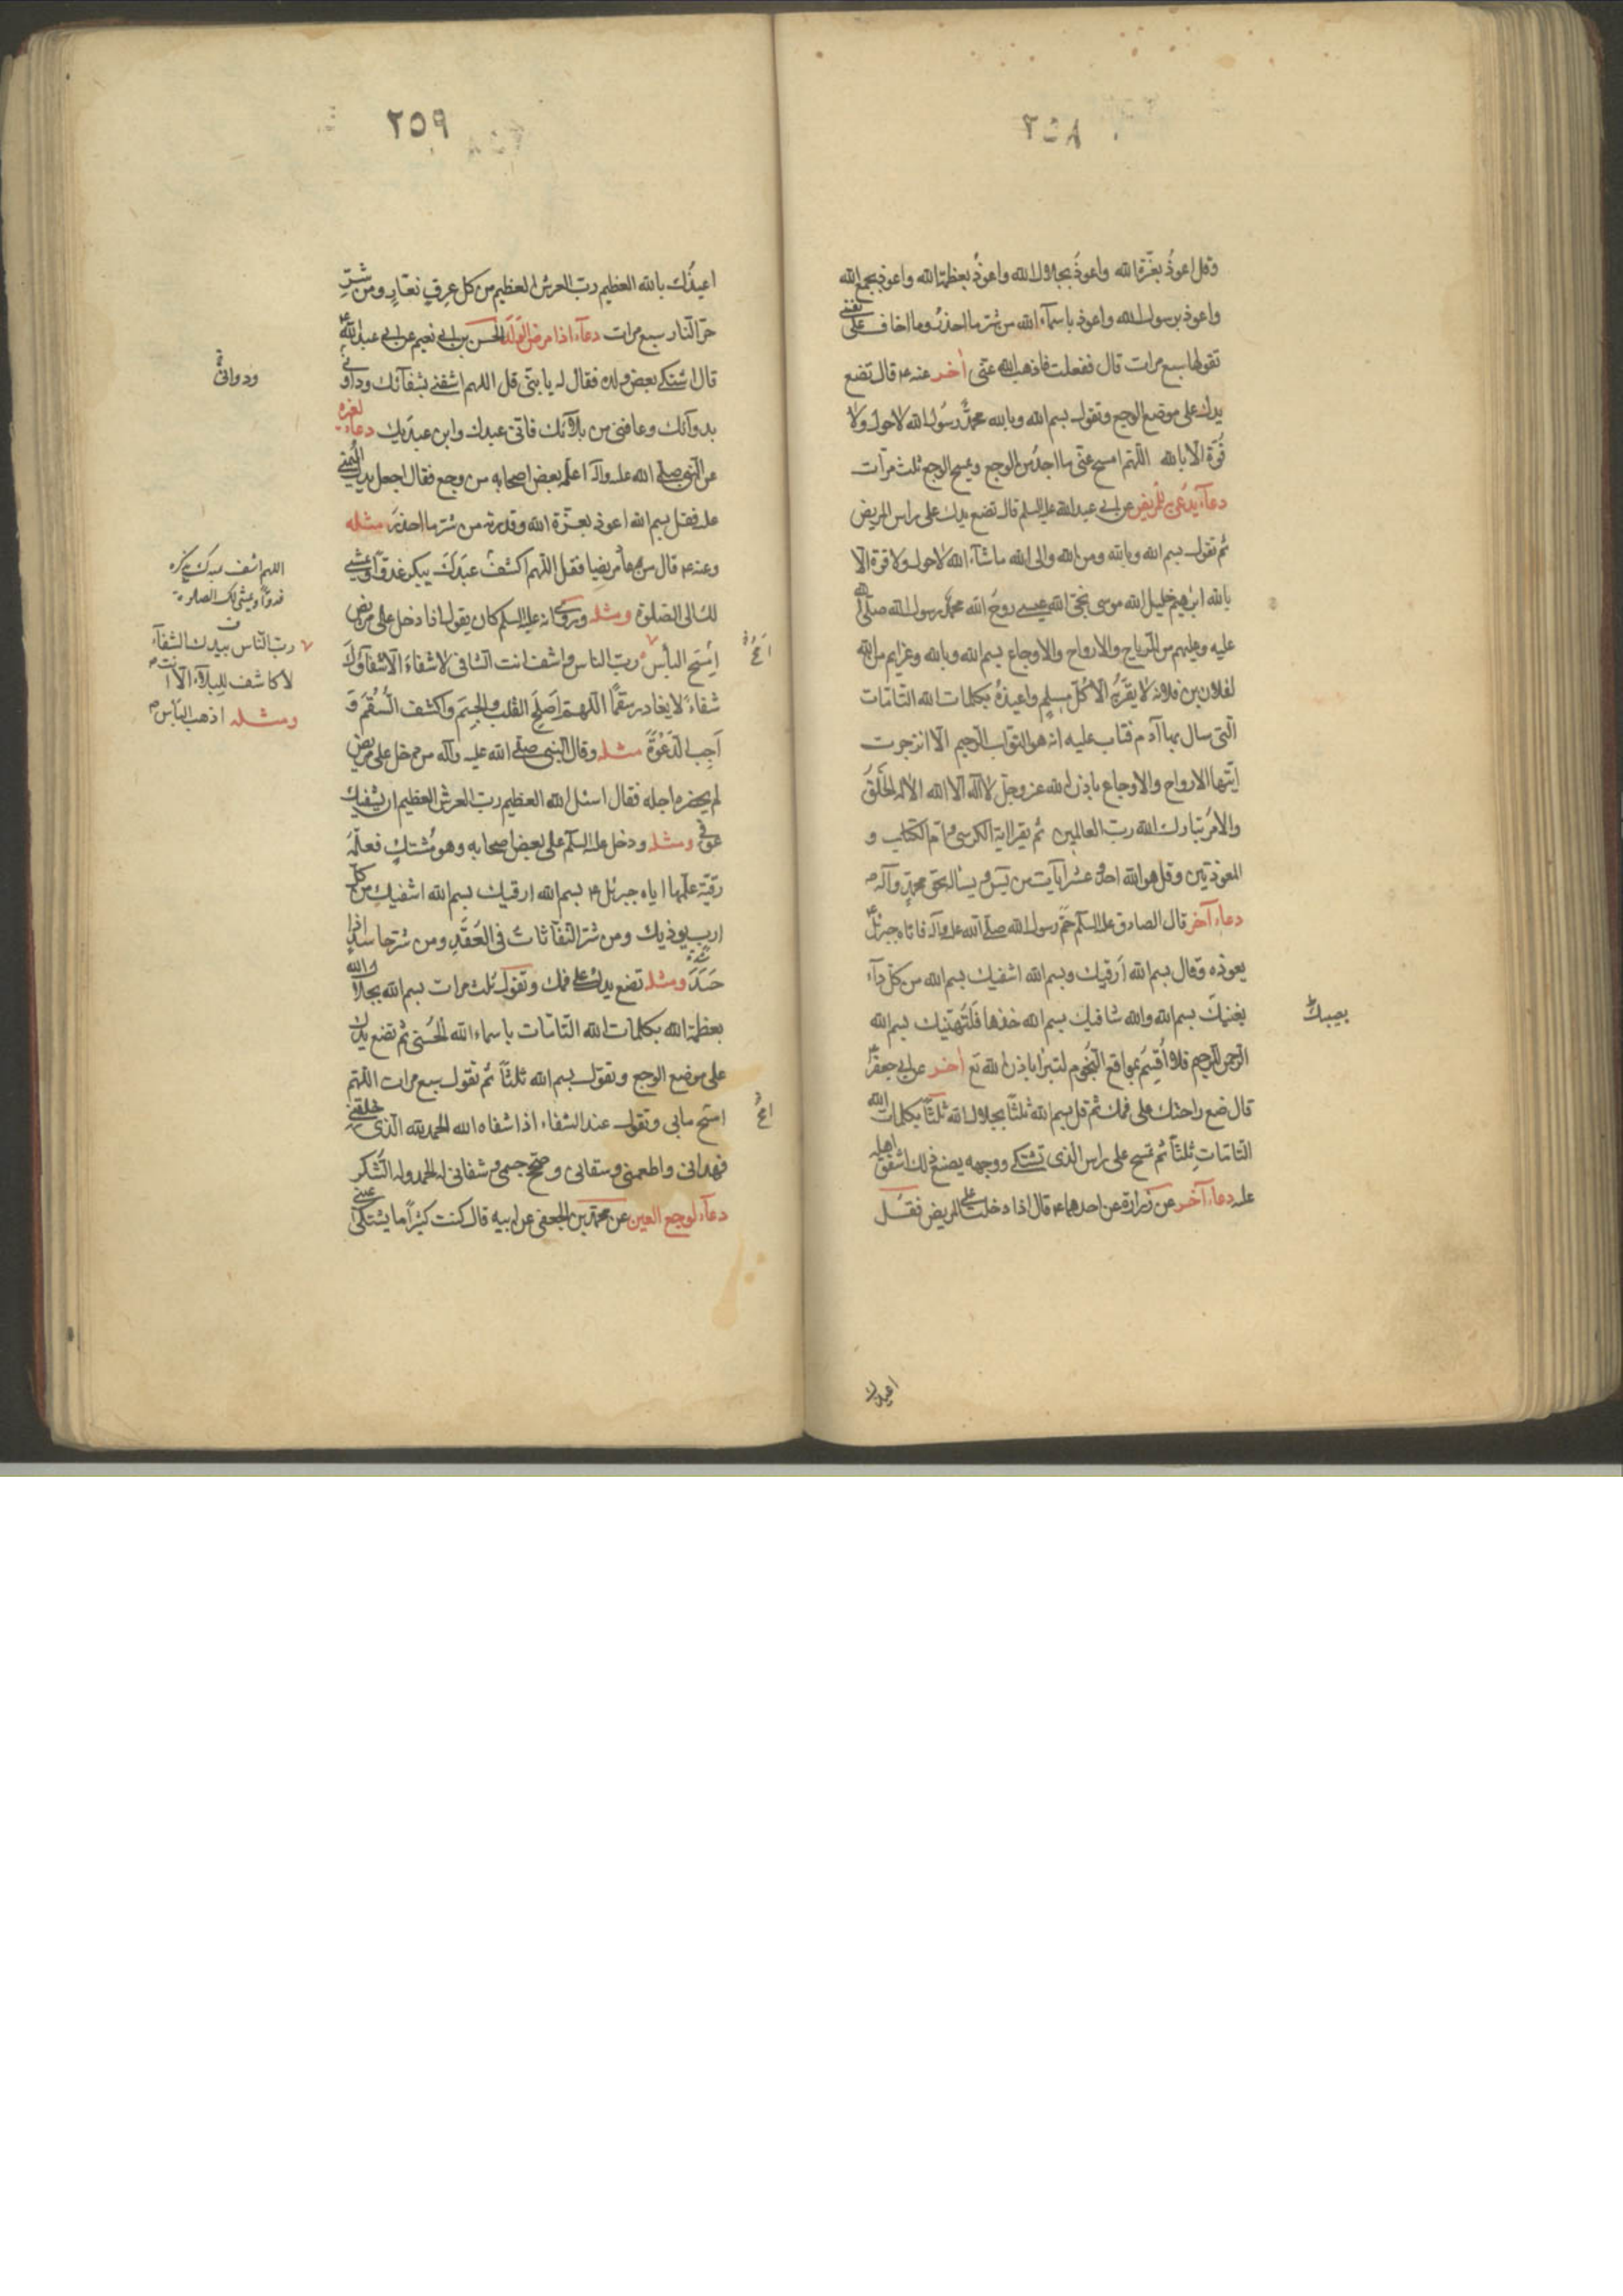 ٢٥٨
وقل اعوذُ بعزّة الله واعوذُ بجلال الله واعوذُ بعظمة الله واعوذ بجمع الله
واعوذ برسول الله واعوذ باسمآء الله من شر ما احذرُ وما اخاف على نفسى
تقولها سبع مرات قال ففعلت فاذهب الله عنّى أخر عنه ع قال تضع
يدك على موضع الوجع وتقول بسم الله وبالله محمدٌ رسُول الله لا حول ولا
قُوّة الّا بالله اللّهم امسح عنّى ما اجدُ من الوجع ويمسح الوجع ثلث مرّات
دعآء يدعى به للمريض عن ابى عبد الله عليه السلم قال تضع يدك على راس المريض
ثم تقول بسم الله وبالله ومن الله والى الله ما شآء الله لا حول ولا قوة الّا
بالله ابرٰهيم خليل الله موسى نجىّ الله عيسى روحُ الله محمدٌ رسول الله صلّى الله
عليه وعليهم من الارياح والارواح والاوجاع بسم الله وبالله وعزايم من الله
لفلان بن فلانه لا يقربُه الّا كُلّ مسلم واعيذهُ بكلمات الله التّامّات
الّتى سال بها آدم فتاب عليه انه هو التوّاب الرّحيم الّا انزجرت
ايّتها الارواح والاوجاع باذن الله عز وجلّ لا اله الّا الله الا له الخَلقُ
والامرُ تبارك الله ربّ العالمين ثم يقرا اية الكرسى وامّ الكتاب و
المعوذتين وقل هو الله احد وعشر آيات من يٓس ويساله بحق محمدٍ وآله
دعاء آخر قال الصادق عليه السلم حُمّ رسول الله صلّى الله عليه واله فاتاه جبرئل ع
يعوذه وقال بسم الله اَرقيك وبسم الله اشفيك بسم الله من كلّ دآء
يعنيكَ بسم الله والله شافيك بسم الله خذها فلتُهنّيك بسم الله
يصيبك
الرحمن الرحيم فلا اُقسِمُ بمواقع النّجُوم لتبرا باذن الله تع أخر عن ابى جعفر ع
قال ضع راحتك على فمك ثم قل بسم الله ثلثًا بجلال الله ثلثًا بكلمات الله
التّامّات ثلثًا ثم تمسح على راس الّذى تشتكى ووجهه يصنع ذلك اشفق اهله
عليه دعاء آخر عن زرارة عن احدهما ع قال اذا دخلت على المريض فقُل
اعيذك
٢٥٩
اعيذُك بالله العظيم ربّ العرش العظيم من كل عِرقٍ نعّارٍ ومن شرّ
حرّ النّار سبع مرات دعآء اذا مرض الولد الحسن بن ابى نعيم عن ابى عبد الله ع
قال اشتكى بعض ولده فقال له يا بنىّ قل اللهم اشفنى بشفآئك وداونى
ودوائى
بدوآئك وعافنى من بلآئك فانّى عبدك وابن عبدَيك دعاء لغيره
عن النّبى صلّى الله عليه واله اعلّم بعض اصحابه من وجع فقال اجعل يدك اليُمنى
عليه فقل بسم الله اعوذ بعزّة الله وقدرته من شر ما احذرُ مثله
وعنه ع قال من عاد مريضا فقل اللّهم اكشف عبدَكَ ينكر غدوًّا ويمشى
لك الى الصّلوة ومثله وروى انه عليه السلم كان يقول اذا دخل على مريض
اللهم اشف عبدك
ويمشى لك الصلوة
اِمسَح البأس ربّ الناس واشف انت الشافى لا شفاءَ الّا شفآؤك
ربّ النّاس بيدك الشفآء
لا كاشف للبلآء الّا انت
ومثله اذهب البأس
شفاءً لا يغادر سقمًا اللّهمّ اَصلِح القلب والجسم واكشف السُّقم وَ
اَجِب الدّعْوَةَ مثله وقال النبى صلّى الله عليه وآله من دخل على مريض
لم يحضره اجله فقال اسئل الله العظيم ربّ العرش العظيم ان يشفيك
عوفى ومثله ودخل عليه السلم على بعض اصحابه وهو مُشتكٍ فعلّمه
رقيّة علّمها اياه جبرئل ع بسم الله ارقيك بسم الله اشفيك من كلّ
اربٍ يوذيك ومن شر النّفّاثات فى العُقَدِ ومن شر حاسدٍ اذا
حَسَدَ ومثله تضع يدك على فمك وتقول ثلث مرات بسم الله بجلال الله
بعظمة الله بكلمات الله التّامّات باسماء الله الحُسنى ثم تضع يدك
على موضع الوجع وتقول بسم الله ثلثاً ثم تقول سبع مرات اللّهم
امسَح ما بى وتقول عند الشفاء اذا شفاه الله الحمد لله الّذى خلقنى
فهدانى واطعمنى وسقانى وصحّح جسمى وشفانى له الحمد وله الشّكر
دعآء لوجع العين عن محمّد بن الجعفى عن ابيه قال كنت كثيرًا ما يشتكى عينى